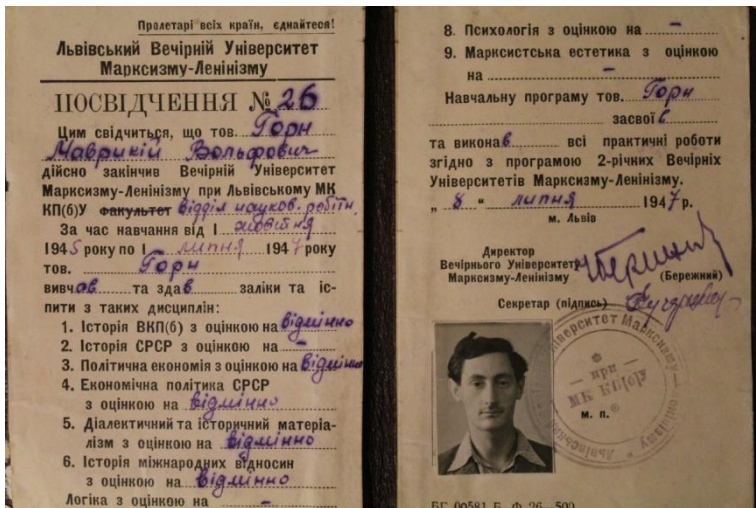 Пролетарі всіх країн, єднайтеся!
Львівський Вечірній Університет
Марксизму-Ленінізму
ПОСВІДЧЕННЯ № 26
Цим свідчиться, що тов. Горн
Маврикій Вольфович
дійсно закінчив Вечірній Університет
Марксизму-Ленінізму при Львівському МК
КП(б)У факультет відділ науков. робітн.
За час навчання від 1 жовтня
1945 року по 1 липня 1947 року
тов. Горн
вивчав та здав заліки та іс-
пити з таких дисциплін:
1. Історія ВКП(б) з оцінкою на відмінно
2. Історія СРСР з оцінкою на –
3. Політична економія з оцінкою на відмінно
4. Економічна політика СРСР
з оцінкою на відмінно
5. Діалектичний та історичний матеріа-
лізм з оцінкою на відмінно
6. Історія міжнародних відносин
з оцінкою на відмінно
Логіка з оцінкою на –
8. Психологія з оцінкою на –
9. Марксистська естетика з оцінкою
на –
Навчальну програму тов. Горн
засвоїв
та виконав всі практичні роботи
згідно з програмою 2-річних Вечірніх
Університетів Марксизму-Ленінізму.
„ 8 “ липня 1947 р.
м. Львів
Директор
Вечірнього Університету
Марксизму-Ленінізму
(Бережний)
Секретар (підпис)
Університет Марксизму-Ленінізму
при
МК КП(б)У
м. п.
БГ 00581 Б. Ф. 26—500